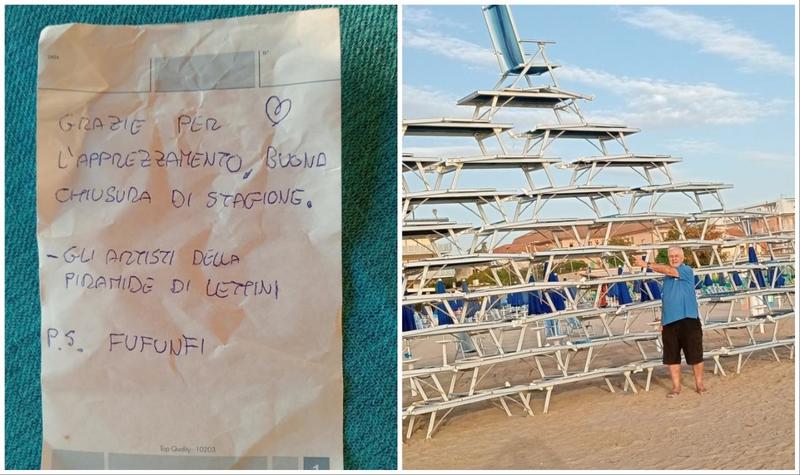 DATA
N°
GRAZIE PER
L'APPREZZAMENTO, BUONA
CHIUSURA DI STAGIONE.
- GLI ARTISTI DELLA
PIRAMIDE DI LETTINI
P.S. FUFUNFI
Top Quality - 10203
1